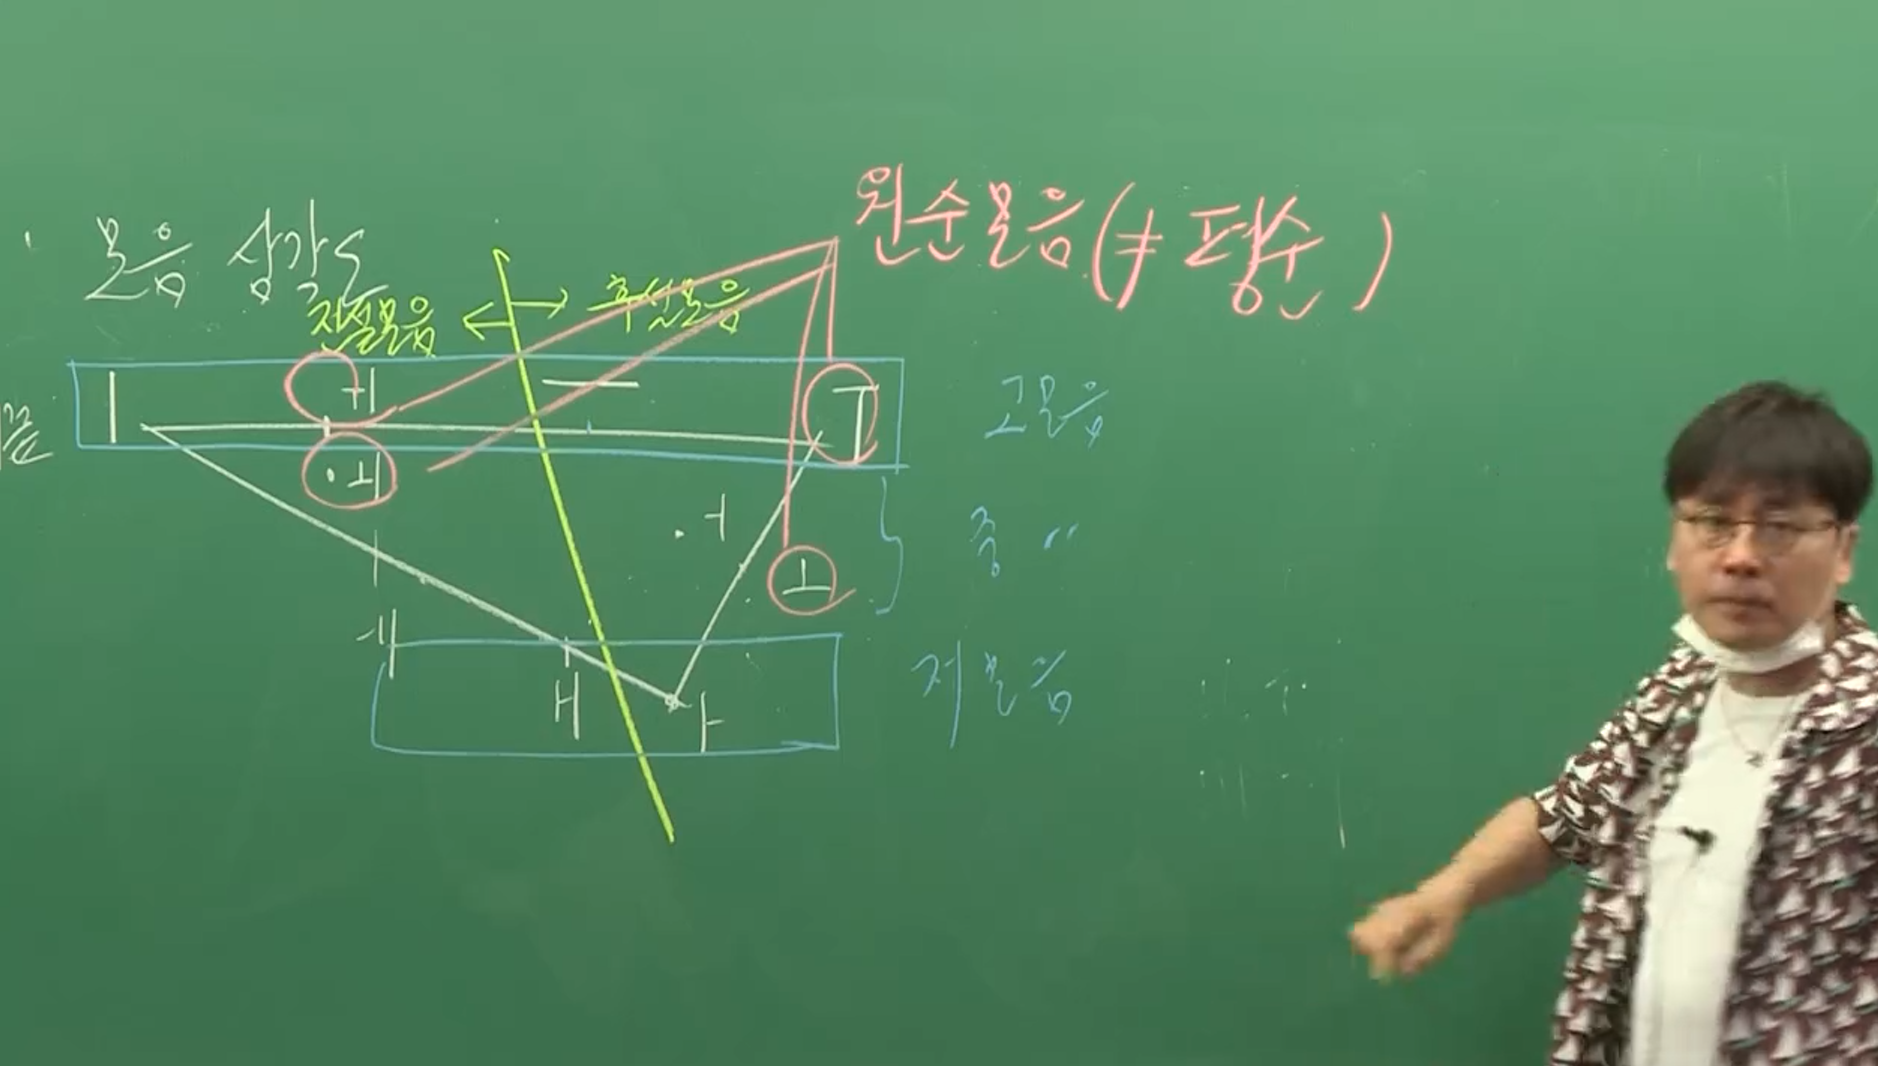 모음 삼각도
원순모음(≠ 평순)
전설모음 ← → 후설모음
ㅣ ㅟ ㅡ ㅜ 고모음
ㅚ
ㅓ 중 〃
ㅗ
ㅔ 저모음
ㅐ ㅏ